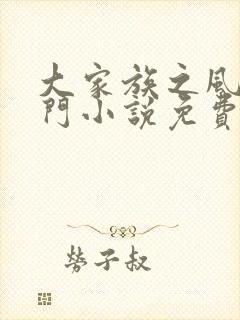 大家族之风
門小說免費
勞子叔